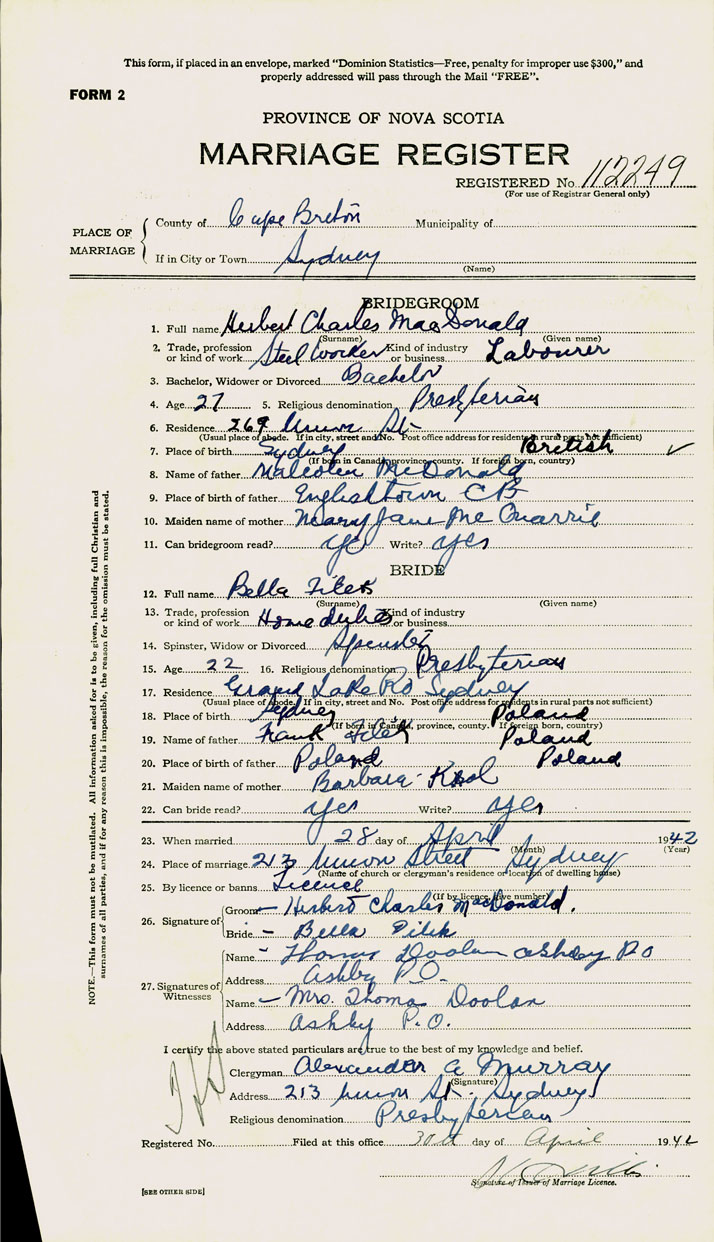 This form, if placed in an envelope, marked “Dominion Statistics—Free, penalty for improper use $300,” and
properly addressed will pass through the Mail “FREE”.
FORM 2
PROVINCE OF NOVA SCOTIA
MARRIAGE REGISTER
REGISTERED No. 112249
(For use of Registrar General only)
PLACE OF MARRIAGE
County of Cape Breton Municipality of
If in City or Town Sydney
(Name)
BRIDEGROOM
1. Full name Herbert Charles MacDonald
(Surname) (Given name)
2. Trade, profession or kind of work Steel Worker Kind of industry or business Labourer
3. Bachelor, Widower or Divorced Bachelor
4. Age 27 5. Religious denomination Presbyterian
6. Residence 269 Union St.
(Usual place of abode. If in city, street and No. Post office address for residents in rural parts not sufficient)
7. Place of birth Sydney British ✓
(If born in Canada, province, county. If foreign born, country)
8. Name of father Malcolm McDonald
9. Place of birth of father Englishtown CB
10. Maiden name of mother Mary Jane Mc Quarrie
11. Can bridegroom read? yes Write? yes
BRIDE
12. Full name Bella
(Surname) (Given name)
13. Trade, profession or kind of work Home duties Kind of industry or business
14. Spinster, Widow or Divorced Spinster
15. Age 22 16. Religious denomination Presbyterian
17. Residence Grand Lake Rd Sydney
(Usual place of abode. If in city, street and No. Post office address for residents in rural parts not sufficient)
18. Place of birth Sydney Poland
(If born in Canada, province, county. If foreign born, country)
19. Name of father Frank Poland
20. Place of birth of father Poland Poland
21. Maiden name of mother Barbara
22. Can bride read? yes Write? yes
23. When married 28 day of April 1942
(Month) (Year)
24. Place of marriage 213 Union Street Sydney
(Name of church or clergyman's residence or location of dwelling house)
25. By licence or banns Licence
(If by licence, give number)
26. Signature of
Groom – Herbert Charles MacDonald.
Bride – Bella
27. Signatures of Witnesses
Name – Thomas Doolan Ashby P O
Address Ashby P.O.
Name – Mrs. Thomas Doolan
Address Ashby P.O.
I certify the above stated particulars are true to the best of my knowledge and belief.
Clergyman Alexander A Murray
(Signature)
Address 213 Union St. Sydney
Religious denomination Presbyterian
Registered No. Filed at this office 30th day of April 1942
Signature of Issuer of Marriage Licence.
[SEE OTHER SIDE]
NOTE.—This form must not be mutilated. All information asked for is to be given, including full Christian and
surnames of all parties, and if for any reason this is impossible, the reason for the omission must be stated.